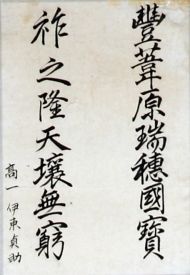 豐葦原瑞穗國寶
祚之隆天壤無窮
高一 伊東貞助